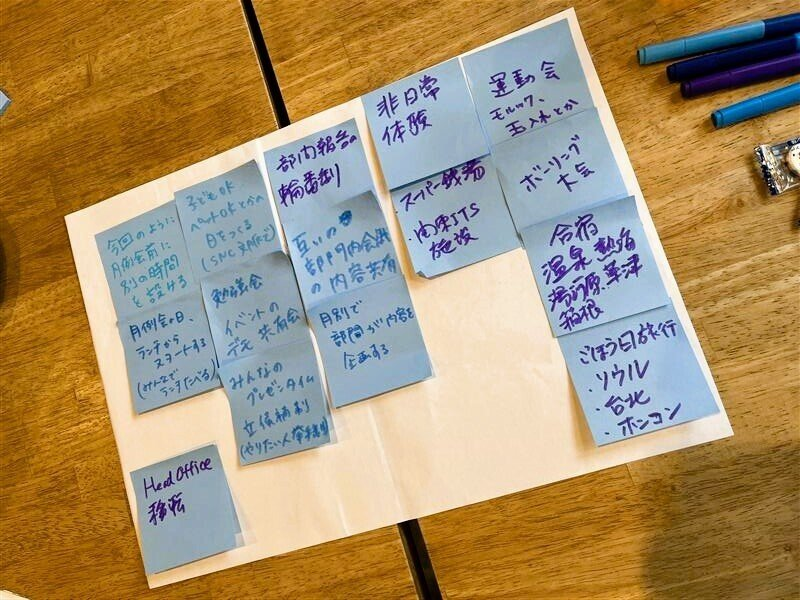 今回のように
月例会前に
別の時間
を設ける
月例会の日、
ランチから
スタートする
(みんなで
ランチたべる)
子どもOK
ペットOKとかの
日をつくる
勉強会
イベントの
デモ 共有会
みんなの
プレゼンタイム
立候補制
(やりたい人
部内報告の
輪番制り
互いの
部門内会議
の内容共有
月別で
部門がい内容を
企画する
非日常
体験
・スーパー銭湯
・関東ITS
施設
運動会
モルック、
玉入れとか
ボーリング
大会
合宿
温泉 熱海
湯河原 草津
箱根
ごほうび旅行
・ソウル
・台北
・ホンコン
Head Office
移転